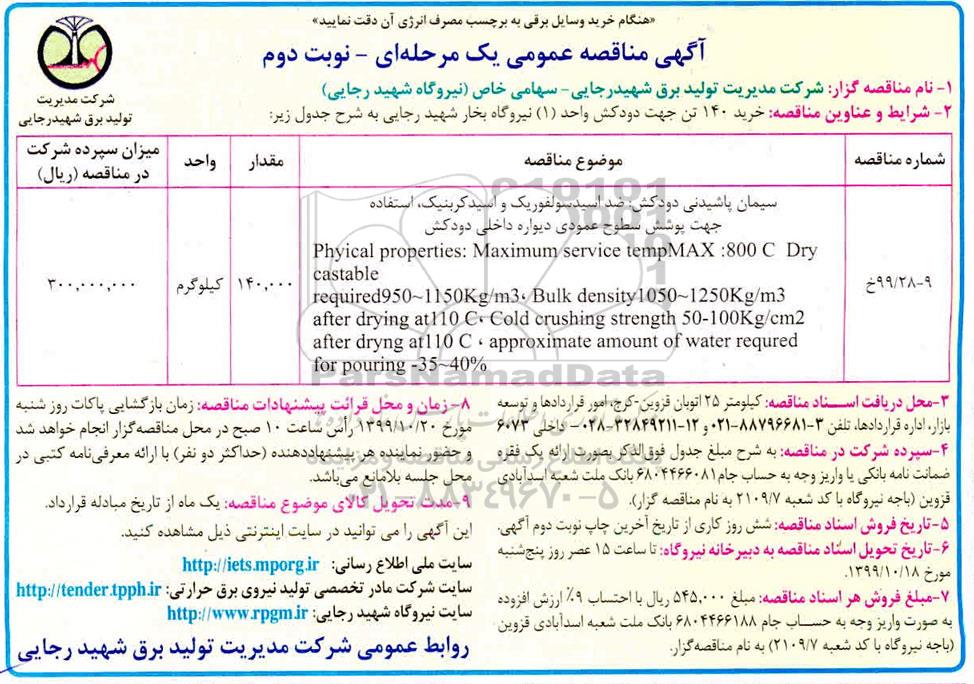 «هنگام خرید وسایل برقی به برچسب مصرف انرژی آن دقت نمایید»
آگهی مناقصه عمومی یک مرحله‌ای - نوبت دوم
شرکت مدیریت
تولید برق شهیدرجایی
۱- نام مناقصه گزار: شرکت مدیریت تولید برق شهیدرجایی- سهامی خاص (نیروگاه شهید رجایی)
۲- شرایط و عناوین مناقصه: خرید ۱۴۰ تن جهت دودکش واحد (۱) نیروگاه بخار شهید رجایی به شرح جدول زیر:
شماره مناقصه
موضوع مناقصه
مقدار
واحد
میزان سپرده شرکت
در مناقصه (ریال)
۹۹/۲۸-۹خ
سیمان پاشیدنی دودکش: ضد اسیدسولفوریک و اسیدکربنیک، استفاده
جهت پوشش سطوح عمودی دیواره داخلی دودکش
Phyical properties: Maximum service tempMAX :800 C Dry
castable
required950~1150Kg/m3، Bulk density1050~1250Kg/m3
after drying at110 C، Cold crushing strength 50-100Kg/cm2
after dryng at110 C ، approximate amount of water requred
for pouring -35~40%
۱۴۰,۰۰۰
کیلوگرم
۳۰۰,۰۰۰,۰۰۰
۳-محل دریافت اسناد مناقصه: کیلومتر ۲۵ اتوبان قزوین-کرج، امور قراردادها و توسعه
بازار، اداره قراردادها، تلفن ۳-۸۸۷۹۶۶۸۱-۰۲۱ و ۱۲-۳۲۸۴۹۲۱۱-۰۲۸- داخلی ۶۰۷۳
۴-سپرده شرکت در مناقصه: به شرح مبلغ جدول فوق‌الذکر بصورت ارائه یک فقره
ضمانت نامه بانکی یا واریز وجه به حساب جام ۶۸۰۴۴۶۶۰۸۱ بانک ملت شعبه اسدآبادی
قزوین (باجه نیروگاه با کد شعبه ۲۱۰۹/۷ به نام مناقصه گزار).
۵-تاریخ فروش اسناد مناقصه: شش روز کاری از تاریخ آخرین چاپ نوبت دوم آگهی.
۶-تاریخ تحویل اسناد مناقصه به دبیرخانه نیروگاه: تا ساعت ۱۵ عصر روز پنج‌شنبه
مورخ ۱۳۹۹/۱۰/۱۸.
۷-مبلغ فروش هر اسناد مناقصه: مبلغ ۵۴۵,۰۰۰ ریال با احتساب ۹٪ ارزش افزوده
به صورت واریز وجه به حساب جام ۶۸۰۴۴۶۶۱۸۸ بانک ملت شعبه اسدآبادی قزوین
(باجه نیروگاه با کد شعبه ۲۱۰۹/۷) به نام مناقصه‌گزار.
۸-زمان و محل قرائت پیشنهادات مناقصه: زمان بازگشایی پاکات روز شنبه
مورخ ۱۳۹۹/۱۰/۲۰ رأس ساعت ۱۰ صبح در محل مناقصه‌گزار انجام خواهد شد
و حضور نماینده هر پیشنهاددهنده (حداکثر دو نفر) با ارائه معرفی‌نامه کتبی در
محل جلسه بلامانع می‌باشد.
۹-مدت تحویل کالای موضوع مناقصه: یک ماه از تاریخ مبادله قرارداد.
این آگهی را می توانید در سایت اینترنتی ذیل مشاهده کنید.
سایت ملی اطلاع رسانی: http://iets.mporg.ir
سایت شرکت مادر تخصصی تولید نیروی برق حرارتی: http://tender.tpph.ir
سایت نیروگاه شهید رجایی: http://www.rpgm.ir
روابط عمومی شرکت مدیریت تولید برق شهید رجایی
ParsNamadData
۰۲۱-۸۸۳۴۹۶۷۰-۵